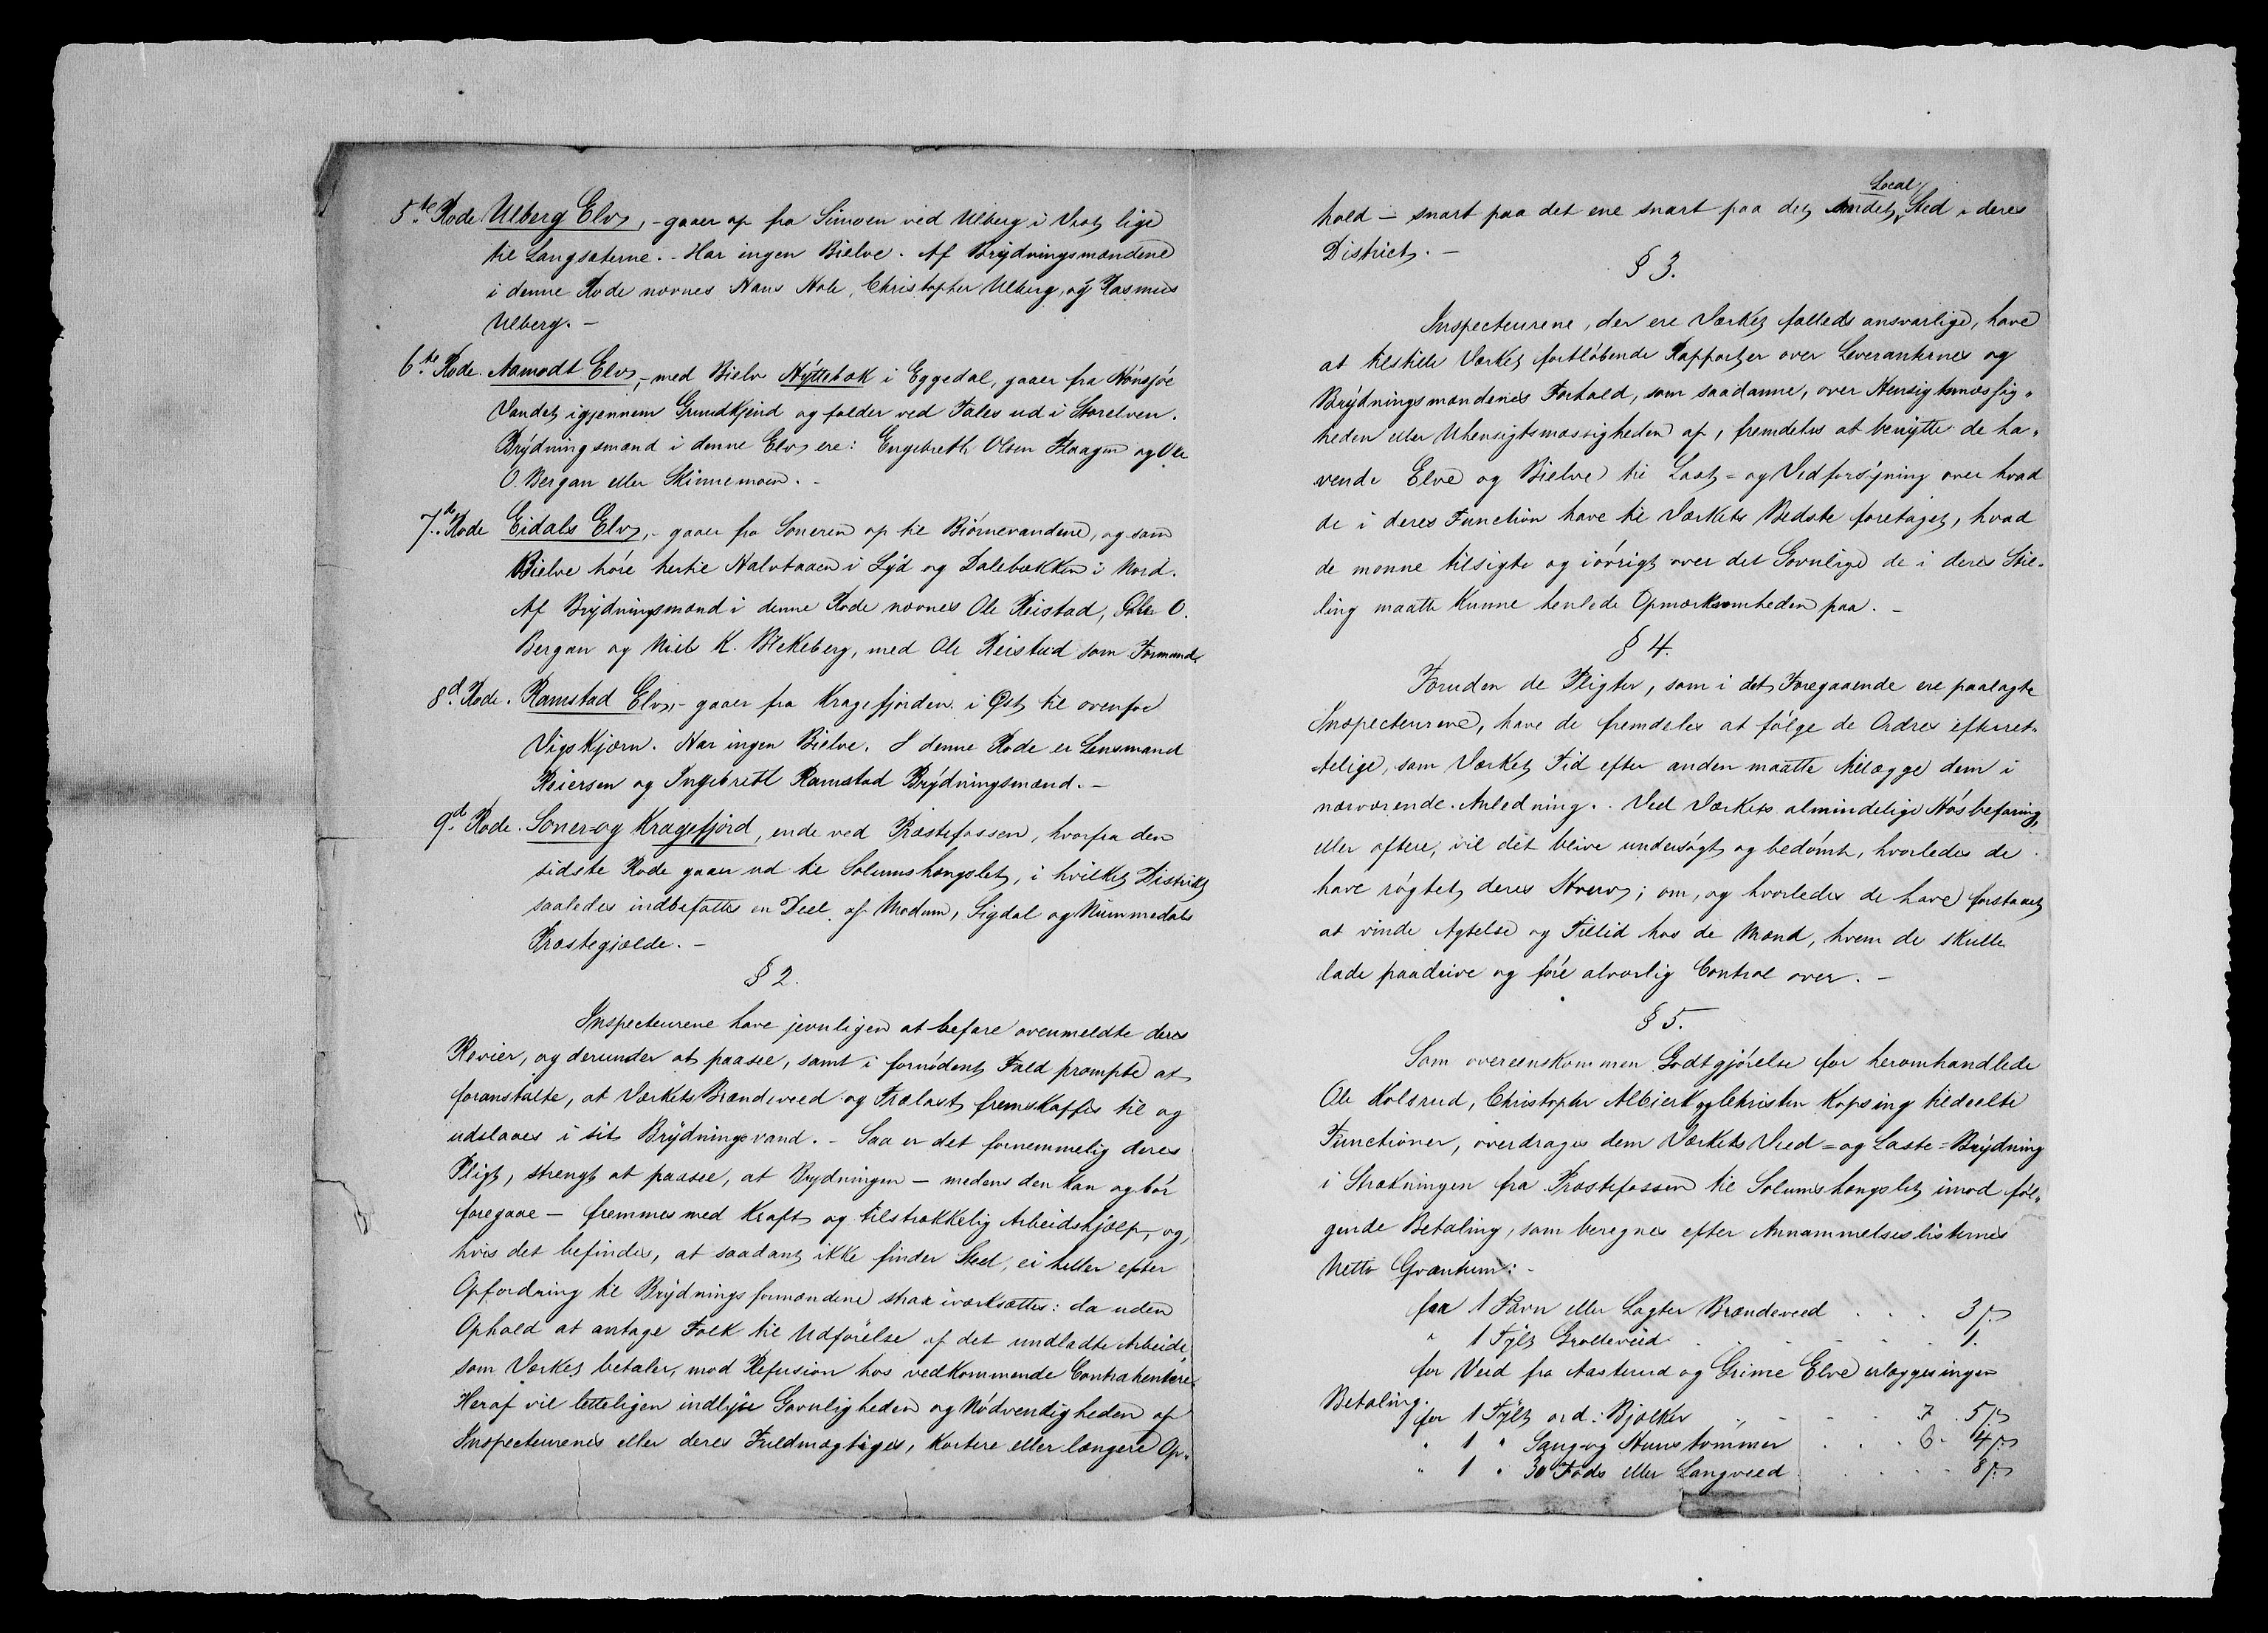 5te Rode Ulberg Elv, - gaaer op fra Simoen ved Ulberg i Vest lige
til Langsæterne. - Har ingen Bielve. Af Brÿdningsmændene
i denne Rode nævnes Hans Hole, Christopher Ulberg, og Rasmus
Ulberg. -
6te Rode. Aamodt Elv, - med Bielv Nÿttebæk i Eggedal, gaaer fra
Vandet igjennem og falder ved Fales ud i Storelven.
Brÿdningsmænd i denne Elv ere: Engebreth Olsen Flaagen og Ole
O. Bergan eller Skinnemoen. -
7de Rode Eidals Elv, - gaaer fra Soneren op til Biørnevandene, og som
Bielve høre hertil i Sÿd og Dalebækken i Nord.
Af Brÿdningsmænd i denne Rode nævnes Ole Reistad, Ole O.
Bergan og Niels K. Blekeberg, med Ole Reistad som Formand.
8de Rode. Ramstad Elv, - gaaer fra Kragefjorden i Øst til ovenfor
Vigs Kjærn. Har ingen Bielve. I denne Rode er Lensmand
Reiersen og Ingebrett Ramstad Brÿdningsmænd. -
9de Rode. Soner- og Kragefjord, ende ved Præstefossen, hvorfra den
sidste Rode gaaer ud til Solumshængslet, i hvilket District
saaledes indbefattes en Deel af Modum, Sigdal og Nummedals
Præstegjælde. -
§ 2.
Inspecteurene have jevnligen at befare ovenmeldte deres
Revier, og derunder at paasee, samt i fornødent Fald prompte at
foranstalte, at Værkets Brændeveed og Trælast fremskaffes til og
udslaaes i sit Brÿdningsvand. - Saa er det fornemmelig deres
Pligt, strengt at paasee, at Brydningen - medens den kan og bør
foregaae - fremmes med Kraft og tilstrækkelig Arbeidshjælp, og,
hvis det befindes, at saadant ikke finder Sted, ei heller efter
Opfordring til Brÿdningsformændene strax iværksættes: da uden
Ophold at antage Folk til Udførelse af det undladte Arbeide,
som Værket betaler, mod Refusion hos vedkommende Contrahentere.
Heraf vil letteligen indlÿse Gavnligheden og Nødvendigheden af
Inspecteurenes eller deres Fuldmægtiges, kortere eller længere Op-
hold - snart paa det ene snart paa det andet Local Sted i deres
District. -
§ 3.
Inspecteurene, der ere Værket fælleds ansvarlige, have
at tilstille Værket fortløbende Rapporter over Leveranternes og
Brÿdningsmændenes Forhold, som saadanne, over Hensigtsmæssig-
heden eller Uhensigtsmæssigheden af, fremdeles at benÿtte de ha-
vende Elve og Bielve til Last- og Vedforsÿning over hvad
de i deres Function have til Værkets Bedste foretaget, hvad
de monne tilsigte og iøvrigt over det Gavnlige de i deres Stil-
ling maatte kunne henlede Opmærksomheden paa. -
§ 4.
Foruden de Pligter, som i det Foregaaende ere paalagte
Inspecteurene, have de fremdeles at følge de Ordres efterret-
telige, som Værket Tid efter anden maatte tillægge dem i
nærværende Anledning. - Ved Værkets almindelige Høsbefaring,
eller oftere, vil det blive undersøgt og bedømt, hvorledes de
have røgtet deres Hverv; om, og hvorledes de have forstaaet
at vinde Agtelse og Tillid hos de Mænd, hvem de skulle
lade paadrive og føre alvorlig Control over. -
§ 5.
Som overeenskommen Godtgjørelse for heromhandlede
Ole Kolsrud, Christopher Albjerk og Christen Kopsing tildeelte
Functioner, overdrages dem Værkets Veed- og Laste-Brÿdning
i Strækningen fra Præstefossen til Solumshængslet imod føl-
gende Betaling, som beregnes efter Annammelseslisternes
Netto Qvantum: -
for 1 Favn eller Lagter Brændeveed . . . 3 ß
" 1 Tÿlt Grolleveed . . . 1.
for Veed fra Aasterud og Grime Elve erlægges ingen
Betaling.
for 1 Tÿlt ord: Bjælker . . . 7. 5 ß
" 1 " Saug- og Huustømmer . . . 6. 4 ß
" 1 " 30 Fods eller Langveed . . . 8 ß